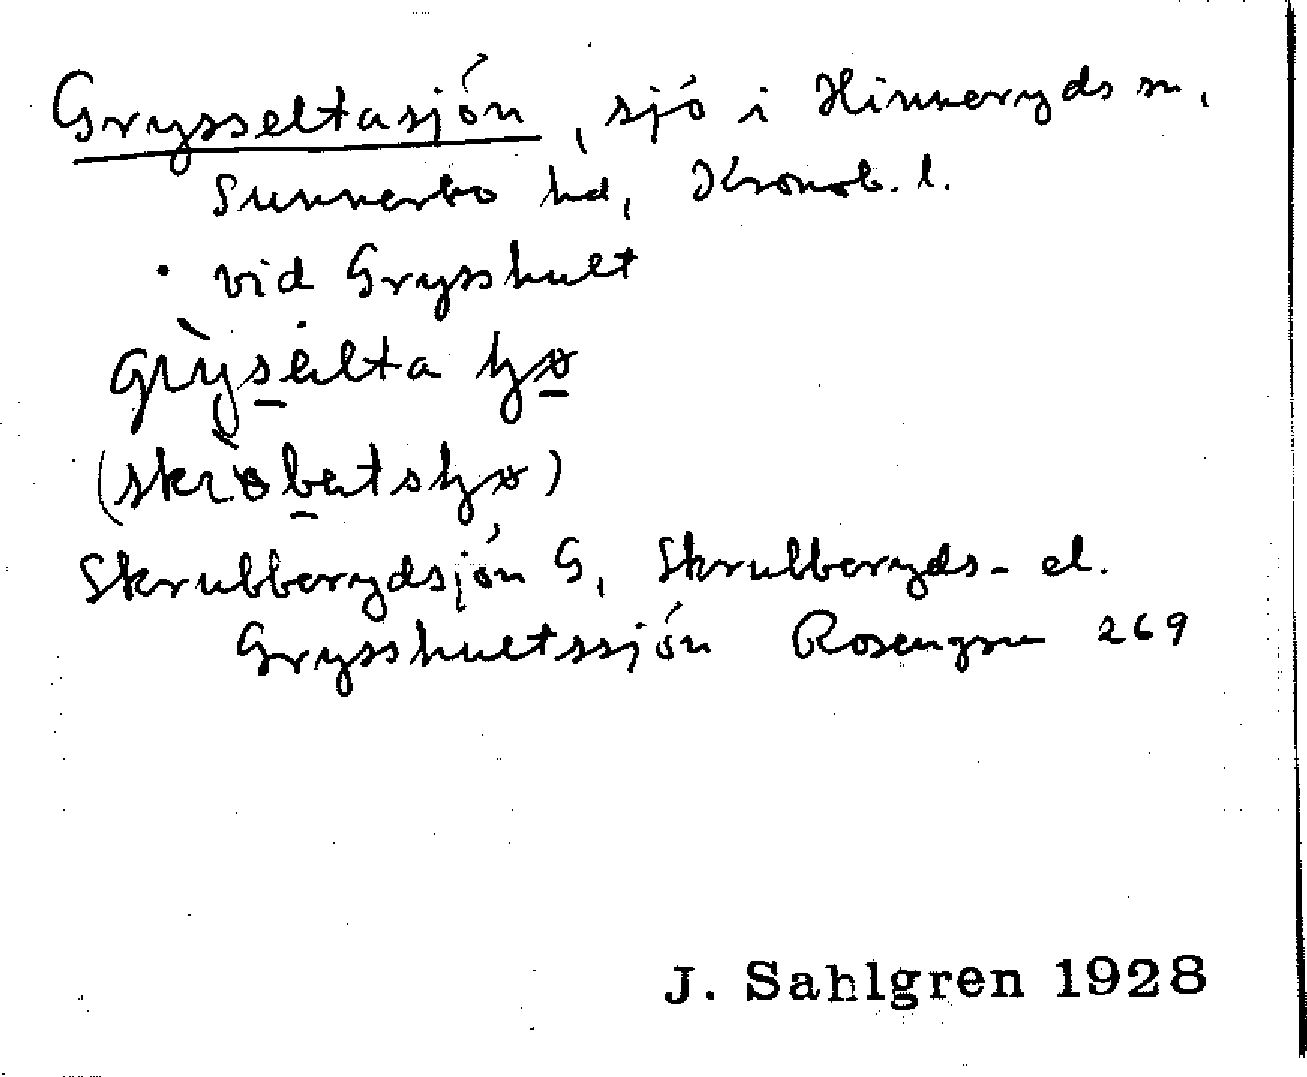 Grysseltasjön, sjö i Hinneryds sn,
Sunnerbo hd, Kronob. l.
· vid Grysshult
Skrubberydsjön G, Skrubberyds- el.
Grysshultssjön Rosengren 269
J. Sahlgren 1928